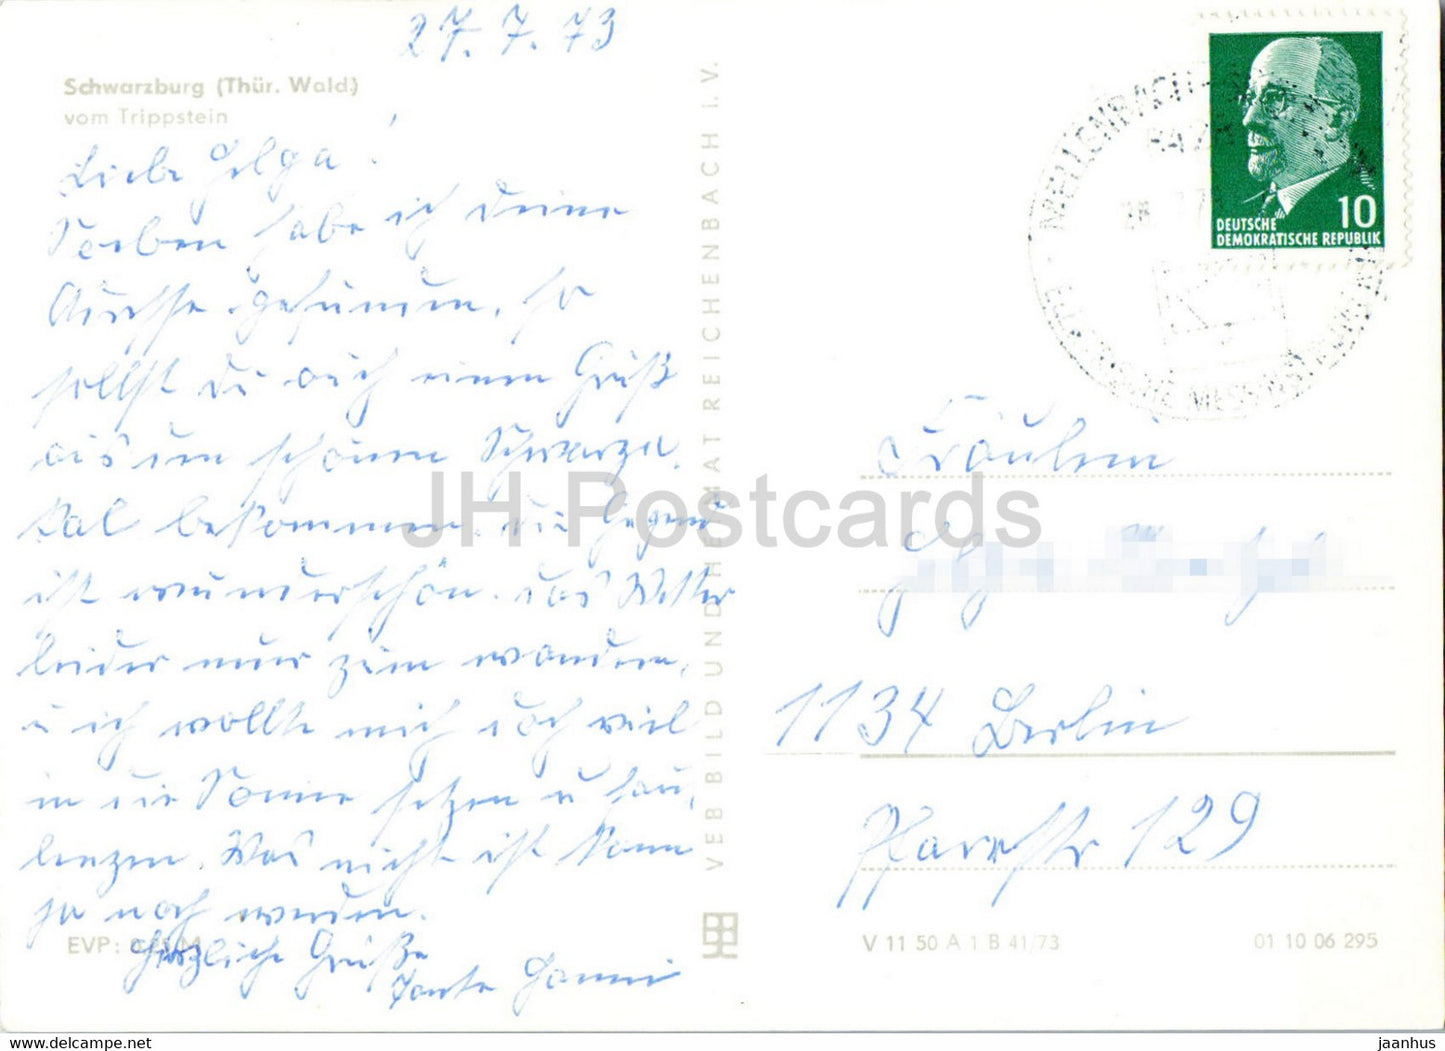 27.7.73
Schwarzburg (Thür. Wald)
vom Trippstein
Liebe Helga!
Soeben habe ich deine
gefunden, so
sollst du auch einen Gruß
aus dem schönen Schwarza-
tal bekommen. die Gegend
ist wunderschön. das Wetter
leider nur zum wandern,
u ich wollte mich doch viel
in die Sonne setzen u fau-
lenzen. Was nicht ist kann
ja noch werden.
Herzliche Grüße
Tante Hanni
EVP:
VEB BILD UND HEIMAT REICHENBACH I. V.
MELLENBACH-
10
DEUTSCHE
DEMOKRATISCHE REPUBLIK
Fräulein
1134 Berlin
Pfarrstr 129
V 11 50 A 1 B 41/73
01 10 06 295
JH Postcards
https://www.jhpostcards.com
jaanhus